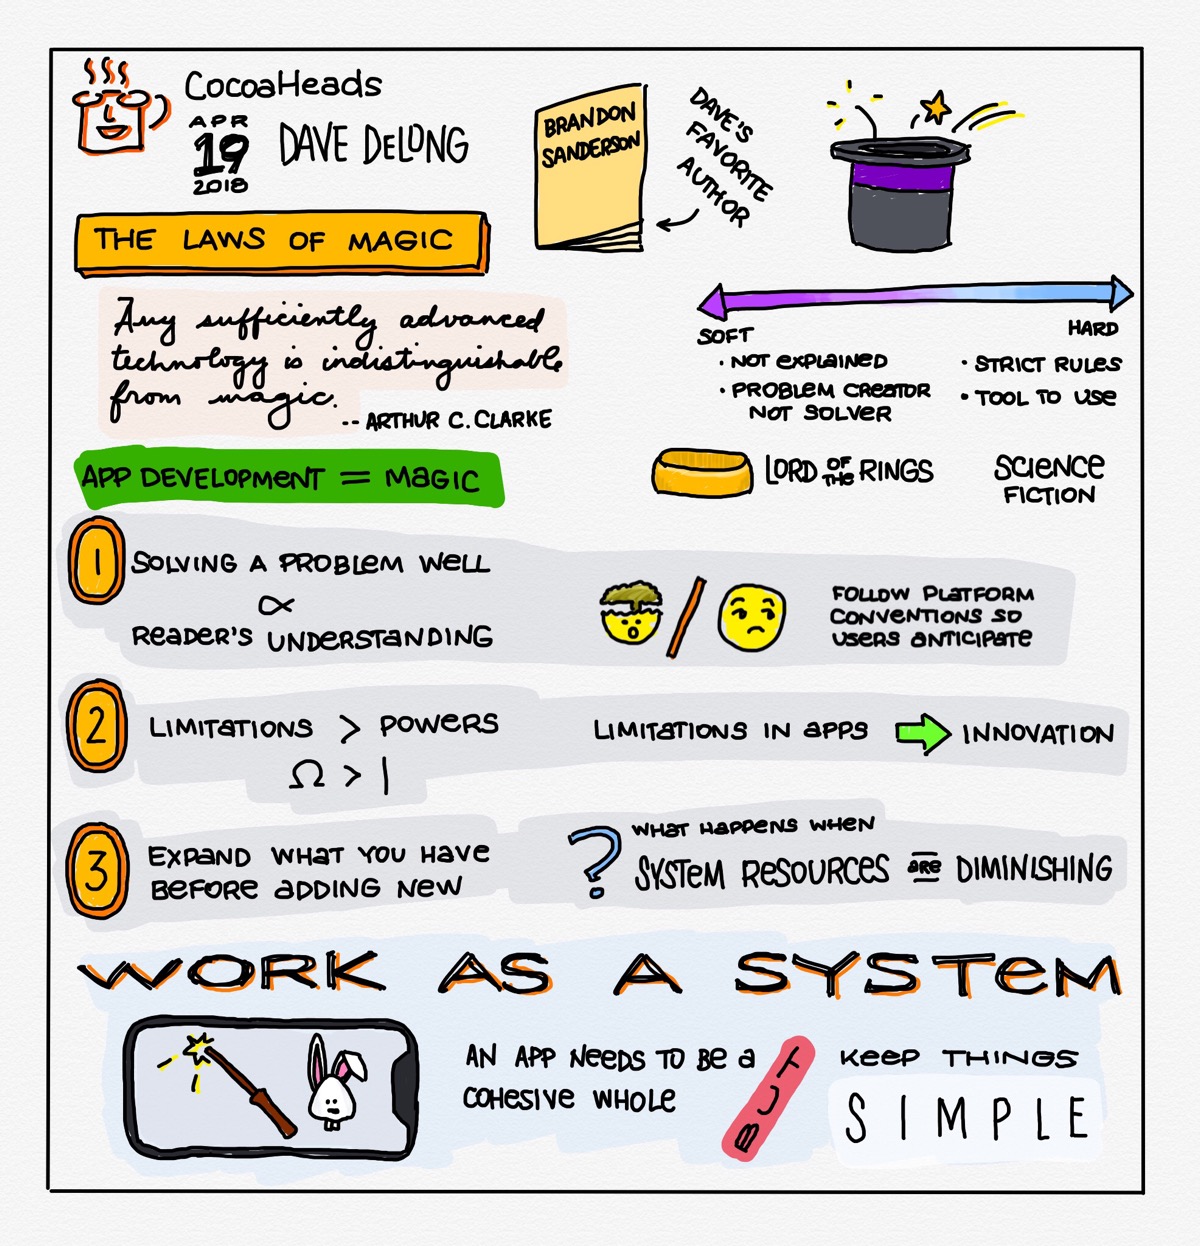 CocoaHeads
APR
19
2018
DAVE DELONG
BRANDON
SANDERSON
DAVE'S
FAVORITE
AUTHOR
THE LAWS OF MAGIC
Any sufficiently advanced
technology is indistinguishable
from magic.
-- ARTHUR C. CLARKE
SOFT
· NOT EXPLAINED
· PROBLEM CREATOR
NOT SOLVER
HARD
· STRICT RULES
· TOOL TO USE
APP DEVELOPMENT = MAGIC
LORD OF THE RINGS
SCIENCE
FICTION
1
SOLVING A PROBLEM WELL
∝
READER'S UNDERSTANDING
FOLLOW PLATFORM
CONVENTIONS SO
USERS ANTICIPATE
2
LIMITATIONS > POWERS
Ω > |
LIMITATIONS IN APPS
INNOVATION
3
EXPAND WHAT YOU HAVE
BEFORE ADDING NEW
?
WHAT HAPPENS WHEN
SYSTEM RESOURCES ARE DIMINISHING
WORK AS A SYSTEM
AN APP NEEDS TO BE A
COHESIVE WHOLE
BUT
KEEP THINGS
SIMPLE